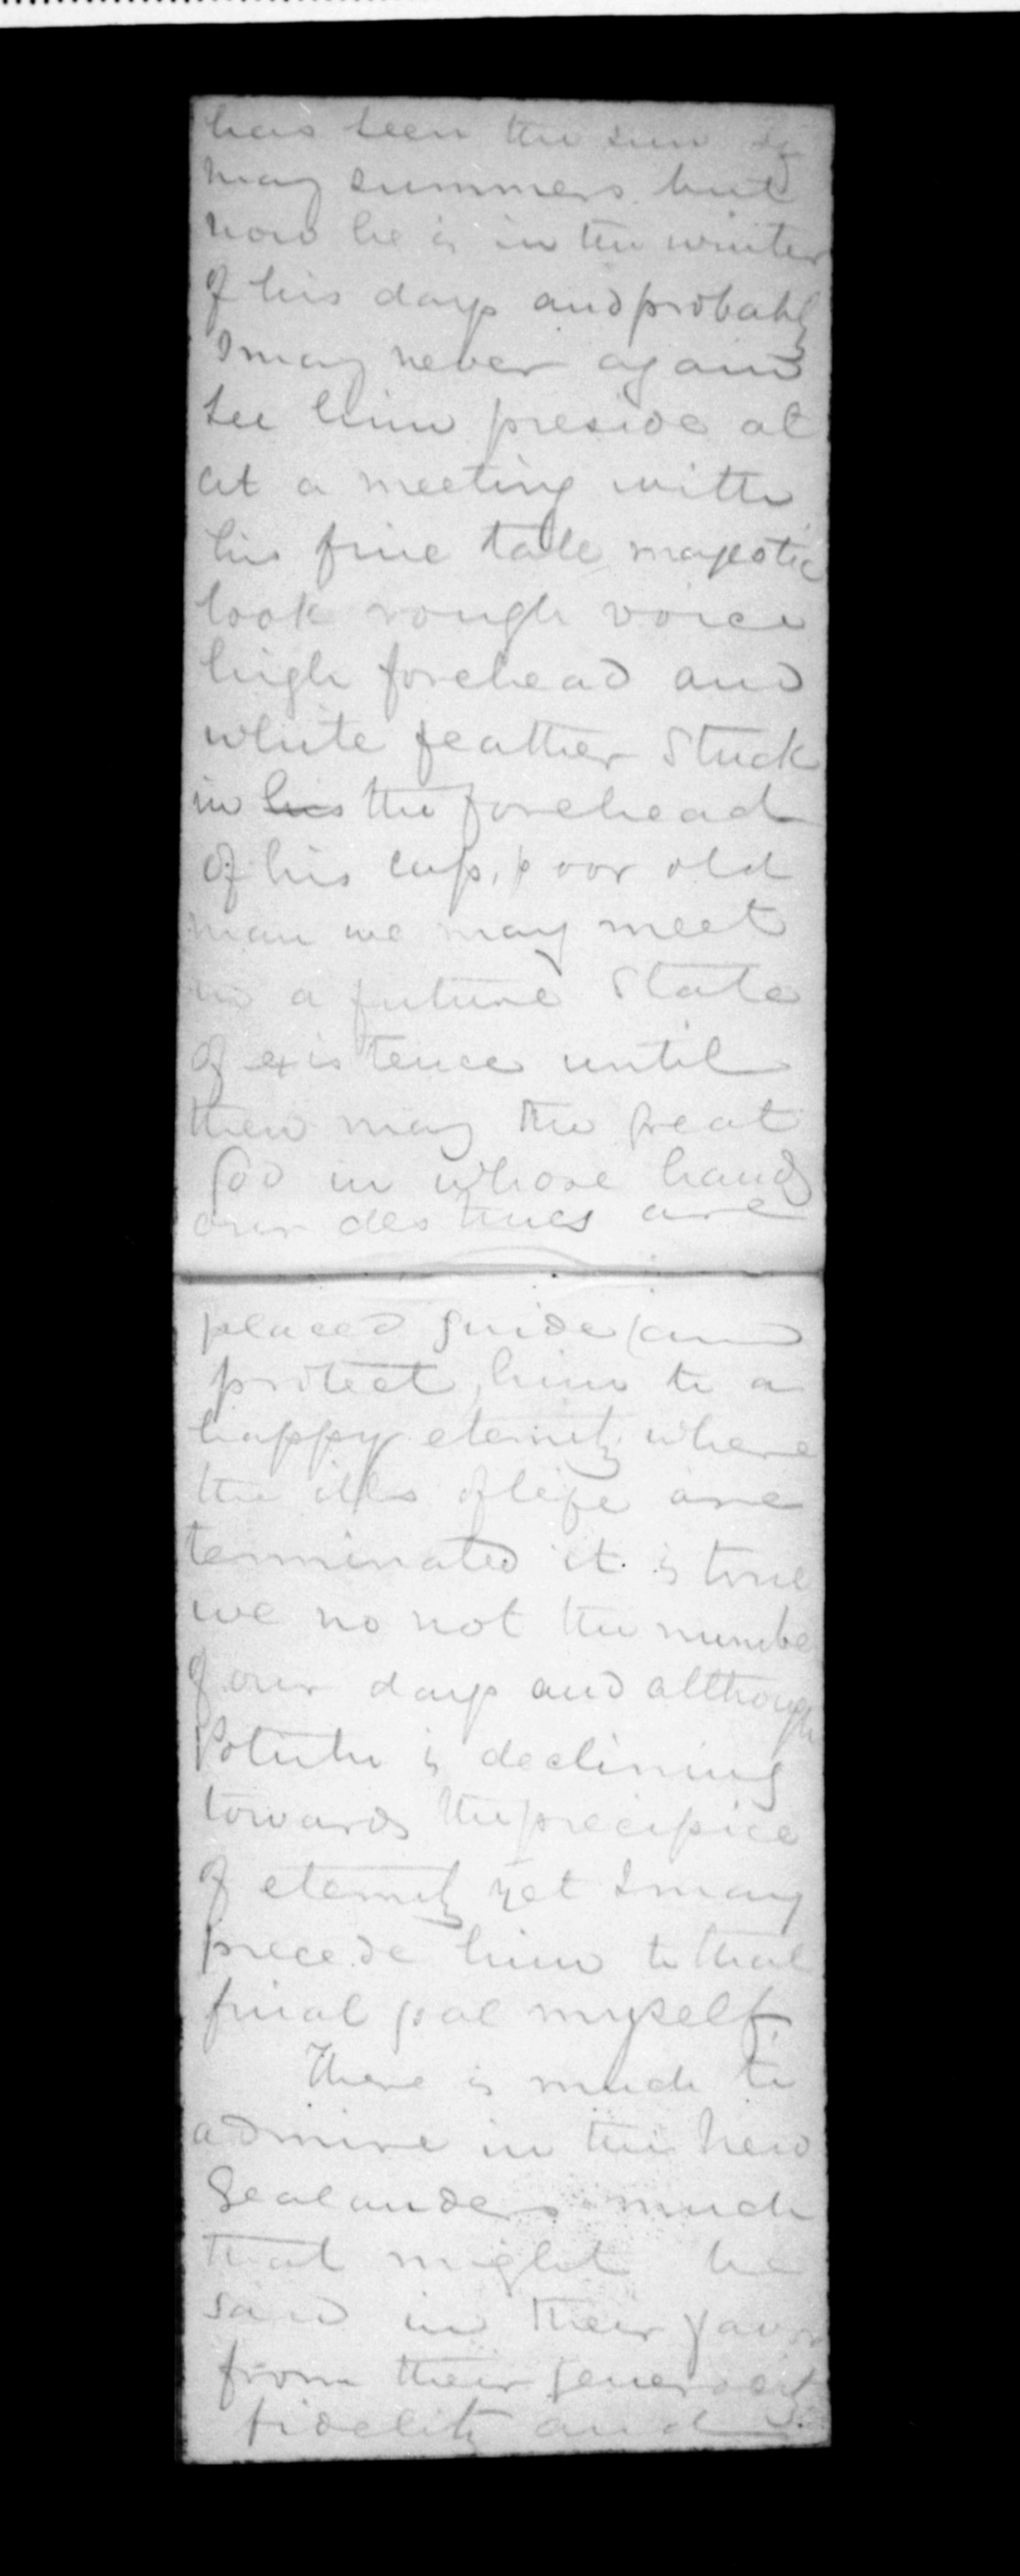 has seen the sun of
may summers but
now he is in the winter
of his days and probably
I may never again
see him preside at
at a meeting with
his fine tale majestic
look rough voice
high forehead and
white feather stuck
in his the forehead
of his cap, poor old
man we may meet
in a future state
of existence until
then may the great
God in whose hands
our destines are
placed guide and
protect, him to a
happy eternity where
the ills of life are
terminated it is true
we no not the number
of our days and although
is declining
towards the precipice
of eternity yet I may
precede him to that
final goal myself.
There is much to
admire in the New
Zealanders much
that might be
said in their favor
from their generosity
fidelity and